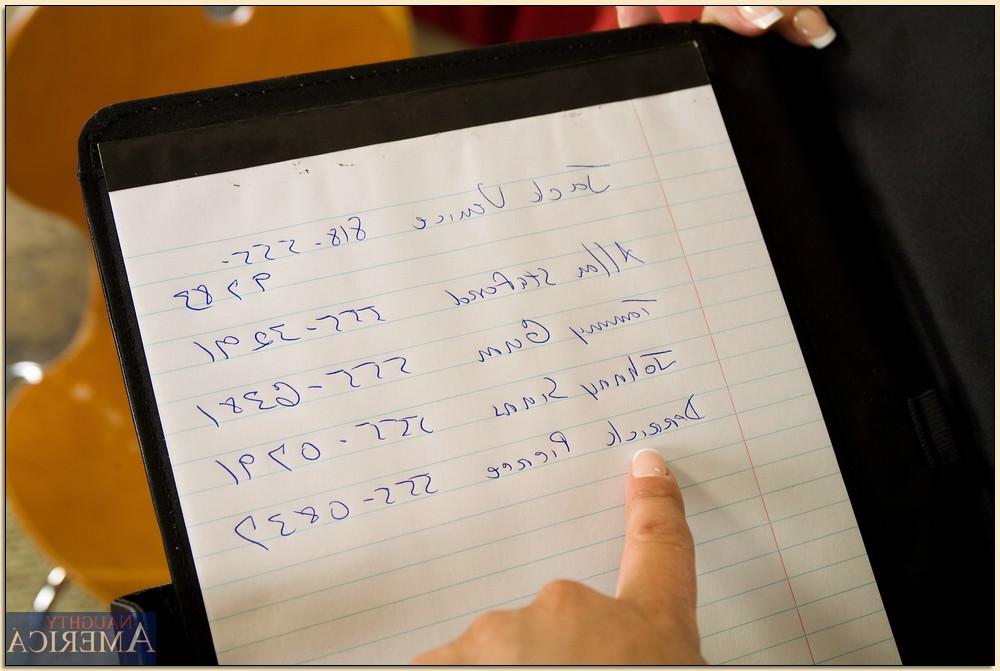 Jack Venice 818-555-
9783
Allan Staford 555-3291
Tommy Gunn 555-6381
Johnny Sinns 555-0791
Derrick Pierce 555-0837
NAUGHTY
AMERICA